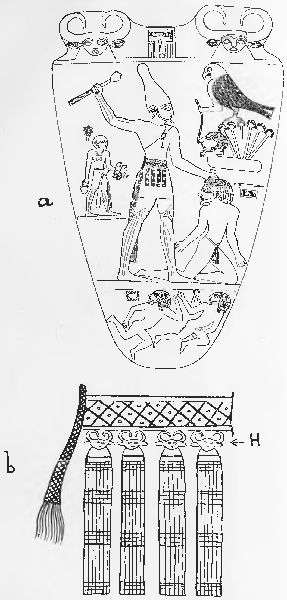 a
b
H